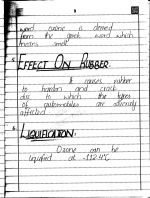 word ozone is derived
from the greek word which
means smell
EFFECT ON RUBBER
It causes rubber
to harden and crack
due to which the tyres
of automobiles are adversely
affected
LIQUIFICATION.
Ozone can be
liquified at -112.4°C